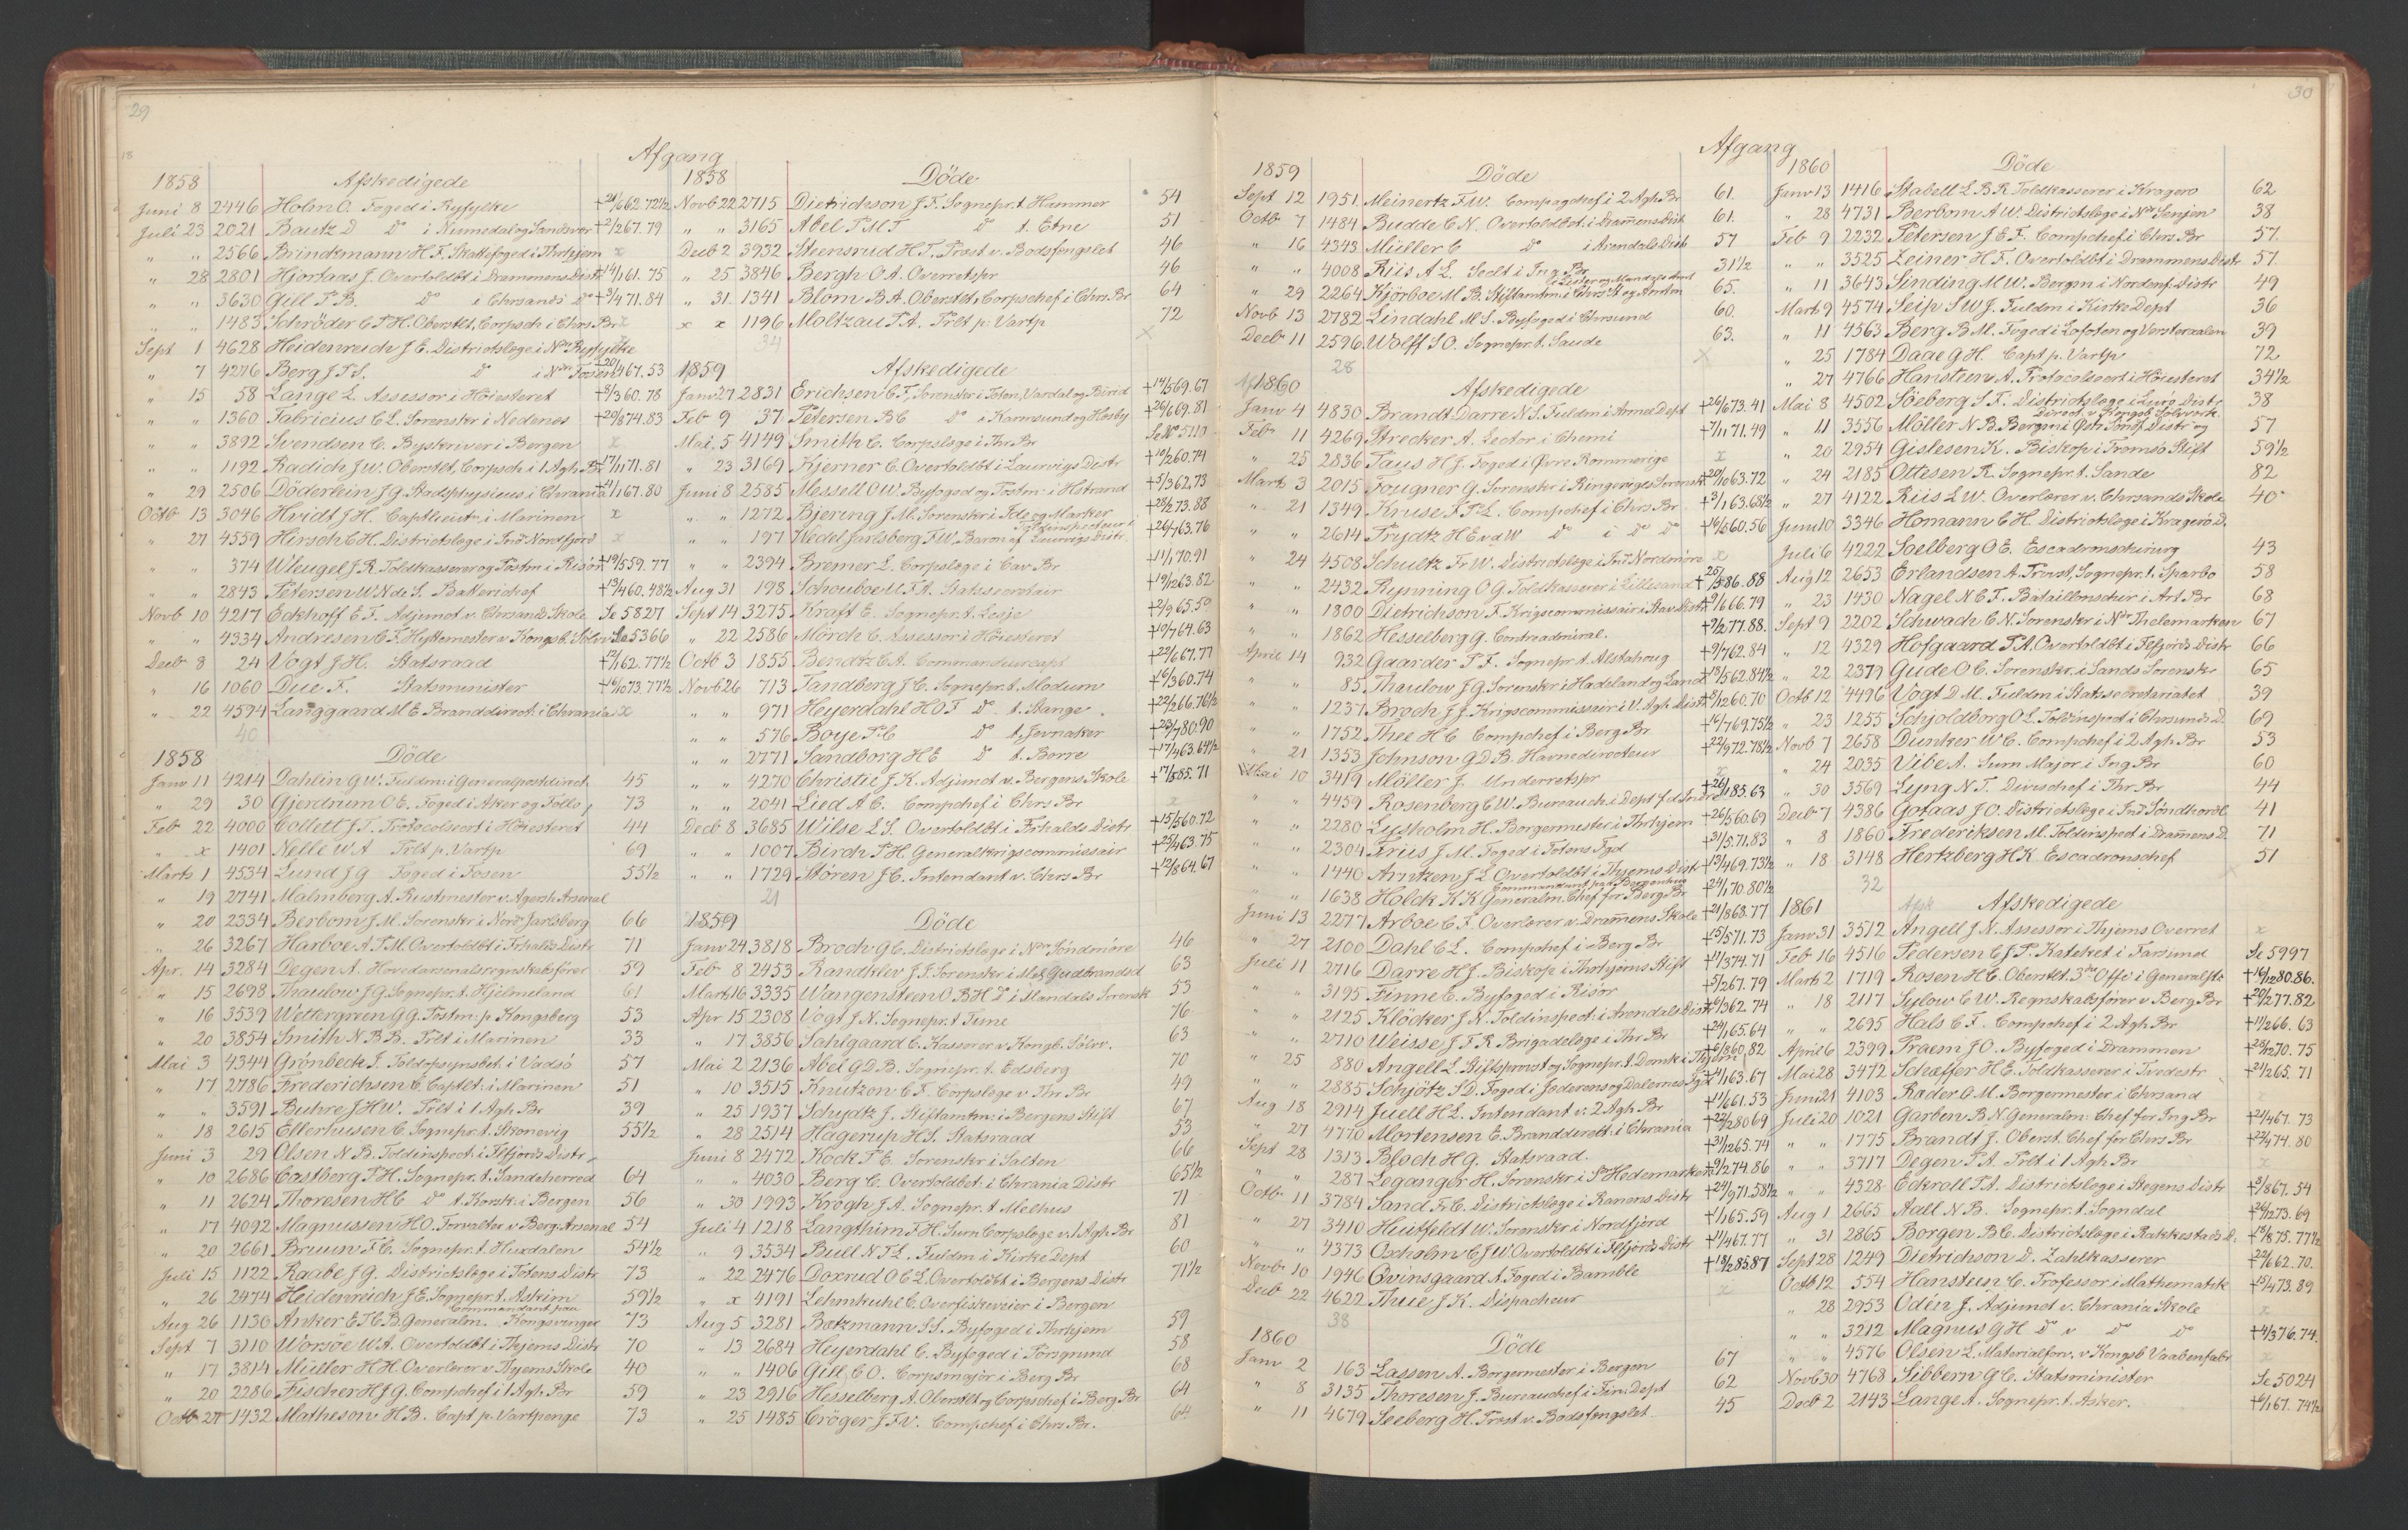 29
18
Afgang
1858
Afskedigede
Juni 8 2446 Holm O. Foged i Ryfylke +24/662.72½
Juli 23 2021 Bautz D D° i Numedal og Sandsvær +2/267.79
" " 2566 Brinckmann H F. Skattefoged i Thrhjem x
" 28 2801 Hjortaas J. Overtoldbt i Drammens Distr +14/161.75
" " 3630 Gill P B. D° i Chrsands D° +3/471.84
" " 1485 Schröder C P H. Oberstlt, Corpsch i Chrs Br x
Sept 1 4628 Heidenreich J E. Districtslæge i Ndr Ryfylke
" 7 4276 Berg J P S. D° i Ndr Fosen +20/467.53
" 15 58 Lange L. Assessor i Höiesteret +3/360.78
" " 1360 Fabricius C L. Sorenskr i Nedenes +20/674.83
" " 3892 Svendsen C. Byskriver i Bergen x
" " 1192 Radich J W. Oberstlt, Corpsch i 1 Agh Br +17/1171.81
" 29 2506 Döderlein J G. Stadsphysicus i Chrania +4/1167.80
Octb 13 3046 Hvidt J H. Captlieutn i Marinen x
" 27 4559 Hirsch C H. Districtslæge i Ind Nordfjord x
" " 374 Wleugel J R. Toldkasserer og Postm i Risör +19/559.77
" " 2843 Petersen W N de S. Batterichef +13/460.48½
Novb 10 4217 Eckhoff E F. Adjunct v. Chrsands Skole Se 5827
" " 4334 Andresen C F. Hyttemester v Kongsb. Sölvv Se 5366
Decb 8 24 Vogt J H. Statsraad +12/162.77½
" 16 1060 Due F. Statsminister +16/1073.77½
" 22 4594 Langgaard M E. Branddirect. i Chrania x
40
1858
Döde
Janv 11 4214 Dahlin G W. Fuldm i Generalpostdirect 45
" 29 30 Gjerdrum O E. Foged i Aker og Follo 73
Feb 22 4000 Collett J T. Protocolsecrt i Höiesteret 44
" x 1401 Nelle W A Prlt p. Vartp 69
Marts 1 4534 Lund J G Foged i Fosen 55½
" 19 2741 Malmberg A. Rustmester v. Agersh Arsenal
" 20 2334 Berbom J M. Sorenskr i Nord Jarlsberg 66
" 26 3267 Harboe A P M. Overtoldbt i Frhalds Distr 71
Apr. 14 3284 Degen A. Hovedarsenalsregnskabsförer 59
" 15 2698 Thaulow J G. Sognepr. t. Hjelmeland 61
" 16 3539 Wettergreen G G. Postm. p Kongsberg 53
" 20 3854 Smith N B B. Prlt i Marinen 33
Mai 3 4344 Grönbeck I. Toldopsynsbet. i Vadsö 57
" 17 2786 Frederichsen C. Captlt. i Marinen 51
" " 3591 Buhre J H W. Prlt i 1 Agh Br 39
" 18 2615 Ellerhusen C. Sognepr. t. Skonevig 55½
Juni 3 29 Olsen N B. Toldinspect. i Flfjords Distr
" 10 2686 Castberg P H. Sognepr. t. Sandeherred 64
" 11 2624 Thoresen H C D° t. Korsk. i Bergen 56
" 17 4092 Magnussen H O. Forvalter v Berg. Arsenal 54
" 20 2661 Bruun F C. Sognepr. t. Huxdalen 54½
Juli 15 1122 Raabe J G. Districtslæge i Totens Distr 73
" 26 2474 Heidenreich J E. Sognepr. t. Askim 59½
Aug 26 1130 Anker E T C B. Generalm. Commandant paa Kongsvinger 73
Sept 7 3110 Worsöe W A. Overtoldbt i Thjems Distr 70
" 17 3814 Müller H H. Overlærer v. Thjems Skole 40
" 20 2286 Fischer H J G. Compchef i 1 Agh Br 59
Octb 27 1432 Matheson H B. Capt p. Vartpenge 73
1858
Döde
Novb 22 2715 Dietrichson J F. Sognepr. t. Hammer 54
" " 3165 Abel P M T D° t. Etne 51
Decb 2 3932 Steensrud H T. Præst v. Bodsfengslet 46
" 25 3846 Bergh O A. Overretspr 46
" 31. 1341 Blom B A. Oberstlt, Corpschef i Chrs. Br 64
x x 1196 Moltzau P A. Prlt p. Vartp 72
34 x
1859
Afskedigede
Janv 27 2831 Erichsen C F. Sorenskr i Toten, Vardal og Birid +14/569.67
Feb 9 37 Petersen B C D° i Karmsund og Hesby +26/669.81
Mai 5 4149 Smith C. Corpslæge i Thr. Br Se N° 5110
" 23 3169 Kjerner C. Overtoldbt i Laurvigs Distr +10/260.74
Juni 8 2585 Messell O W. Byfoged og Postm. i Hstrand +5/362.73
" " 1272 Bjering J M. Sorenskr i Ide og Marker +28/273.88
" " 197 Wedel Jarlsberg F W. Baron af Toldinspecteur i Laurvigs Distr. +26/463.76
" " 2394 Bremer L. Corpslæge i Cav Br +11/170.91
Aug 31 198 Schouboe M F A. Statssecretair +19/1263.82
Sept 14 3275 Kraft E. Sognepr. t. Lesje +2/965.59
" 22 2586 Mörch C. Assessor i Höiesteret +10/764.63
Octb 3 1855 Bendtz C A. Commandeurcapt +22/667.77
Novb 26 713 Tandberg J C. Sognepr. t. Modum +6/360.74
" " 971 Heyerdahl H O F D° t. Stange +22/266.76½
" " 576 Boye P C D° t. Jevnaker +23/780.90
" " 2771 Sandborg H E D° t. Borre +17/463.64½
" " 4270 Christie J K. Adjunct v. Bergens Skole +17/585.71
" " 2041 Lied A C. Compchef i Chrs Br x
Decb 8 3685 Wilse L S. Overtoldbt i Frhalds Distr +15/560.72
" " 1007 Birch P H. Generalkrigscommissair +25/463.75
" " 1729 Stören J C. Intendant v. Chrs Br +12/864.67
21
1859
Döde
Janv 24 3818 Broch G C. Districtslæge i Ndr Söndmöre 46
Feb 8 2453 Randklev J F. Sorenskr i Mel. Gudbrandsd 63
Marts 16 3335 Wangensteen O B H D° i Mandals Sorensk 53
Apr 15 2308 Vogt J N. Sognepr. t. Tune 76
" 17 3856 Sahlgaard C. Kasserer v. Kongb. Sölvv. 63
Mai 2 2136 Abel G D B. Sognepr. t. Edsberg 70
" 10 3515 Knutzon C F. Corpslæge v. Thr. Br 49
" 25 1937 Schydtz J. Stiftamtm. i Bergens Stift 67
" 28 2514 Hagerup H S. Statsraad 53
Juni 8 2472 Kock P E. Sorenskr i Salten 66
" " 4030 Berg C. Overtoldbet. i Chrania Distr 65½
" 30 1993 Krogh J A. Sognepr. t. Melhus 71
Juli 4 1218 Langthim F H. Surn Corpslæge v. 1 Agh Br 81
" 9 3534 Bull N F L. Fuldm i Kirke Dept 60
" 22 2476 Doxrud O C L. Overtoldbt i Bergens Distr 71½
" x 4191 Lehmkuhl C. Overfiskeveier i Bergen
Aug 5 3281 Bætzmann S S. Byfoged i Thrhjem 59
" 13 2684 Heyerdahl C. Byfoged i Porsgrund 58
" " 1406 Gill C O. Corpsmajor i Berg Br 68
" 23 2916 Hesselberg A. Oberstlt og Corpschef i Berg Br 64
" 25 1485 Cröger J F V. Compchef i Chrs Br. 64
30
Afgang
1859
Döde
Sept 12 1951 Meinertz F W. Compagchef i 2 Agh Br 61.
Octb 7 1484 Budde C N. Overtoldbt. i Dramens Distr 61.
" 16 4343 Müller C D° i Arendals Distr 57
" " 4008 Riis A L. Seclt i Ing. Br 31½
" 29 2264 Kjörboe M B. Stiftamtm i Chrs St og Amtm i Lister og Mandals Amt 65.
Novb 13 2782 Lindahl M S. Byfoged i Chrsund 60.
Decb 11 2596 Wolff S O. Sognepr. t. Saude 63.
28 x
1860
Afskedigede
Janv 4 4830 Brandt Darre N S. Fuldm i Armee Dept +26/673.41
Feb 11 4269 Strecker A. Lector i Chemi +7/1171.49
" 25 2836 Faus H J. Foged i Övre Rommerige x
Marts 3 2015 Fougner G. Sorenskr i Ringeriges Sorensk +20/1063.72
" 21 1349 Kruse F P L. Compchef i Chrs Br +3/163.68½
" " 2614 Frydtz H E v d W D° i D° D° +16/560.56
" 24 4508 Schultz Fr W. Districtslæge i Ind Nordmöre x
" " 2432 Rynning O G. Toldkasserer i Lillesand +25/586.88
" " 1800 Dietrichson F. Krigscommissair i Stav. Distr +9/666.79
" " 1862 Hesselberg G. Contreadmiral. +2/277.88.
April 14 932 Gaarder P F. Sognepr t. Alstahoug +9/762.84
" " 85 Thaulow J G. Sorenskr i Hadeland og Land +13/562.84½
" " 1237 Broch J J. Krigscommissair i V. Agh Distr +8/1260.70
" " 1752 Thee H C Compchef i Berg Br +16/769.75½
" 21 1353 Johnson G D B. Havnedirecteur +22/972.78½
Mai 10 3419 Möller J. Underretspr x
" " 4459 Rosenberg C W. Bureauch. i Dept f. d. Indre +26/183.63
" " 2280 Lysholm H. Borgermester i Thrhjem +26/560.69
" " 2304 Friis J M. Foged i Totens Fgd +31/571.83
" " 1440 Arntzen J L. Overtoldbt i Thjems Distr +13/469.73½
" " 1638 Holck K K. Generalm. Chef for Berg Br Commandant paa Bergenhus +24/170.80½
Juni 13 2277 Arboe C F. Overlærer v. Dramens Skole +21/868.77
" 27 2100 Dahl C L. Compchef i Berg Br +5/571.73
Juli 11 2716 Darre H J. Biskop i Thrhjems Stift +11/374.71
" " 3195 Finne C. Byfoged i Risör +5/267.79
" " 2125 Klöcker J N. Toldinspect. i Arendals Distr +6/362.74
" " 2710 Weisse J F R. Brigadelæge i Thr Br +24/165.64
" 25 880 Angell L. Stiftsprovst og Sognepr. t. Domk i Thjem +6/860.82
" " 2885 Schjötz S D. Foged i Jæderens og Dalernes Fgd +4/163.67
Aug 18 2914 Juell H L. Intendant v. 2 Agh Br +11/661.53
" 27 4770 Mortensen E. Branddirect. i Chrania +22/28064
Sept 28 1313 Bloch H G. Statsraad. +31/1265.74
" " 287 Leganger H. Sorenskr i Sr Hedemarken +9/274.86
Octb 11 3784 Sand Fr C. Districtslæge i Ranens Distr +24/971.58½
" 27 3410 Heitfeldt W. Sorenskr i Nordfjord +1/165.59
" " 4373 Oxholm C J W. Overtoldbt i Flfjords Distr +11/467.77
Novb 10 1946 Qvinsgaard A. Foged i Bamble +18/285.87
Decb 22 4622 Thue J K. Dispacheur x
38
1860
Döde
Janv 2 163 Lassen A. Borgermester i Bergen 67
" 8 3135 Thoresen J. Bureauchef i Fin. Dept 62
" 11 4679 Seeberg H. Præst v. Bodsfengslet 45
1860
Döde
Janv 13 1416 Stabell L B R. Toldkasserer i Kragerö 62
" 28 4731 Berbom A W. Districtslæge i Ndr Senjen 38
Feb 9 2232 Petersen J E F. Compchef i Chrs. Br 57.
" " 3525 Leiner H F. Overtoldbt i Drammens Distr 57.
" 11 3643 Sinding M W. Bergm i Nordenf. Distr 49
Marts 9 4574 Seip S W J. Fuldm i Kirke Dept 36
" 11 4563 Berg B M. Foged i Lofoten og Vesteraalen 39
" 25 1784 Daae G H. Capt p. Vartp 72
" 27 4766 Hansteen A. Protocolsecrt i Höiesteret 34½
Mai 8 4502 Söeberg S F. Districtslæge i Lurö Distr 38
" 11 3556 Möller N B. Bergm i Östr Söndf Distr og Direct. v. Kongsb Sölvverk 57
" 20 2954 Gislesen K. Biskop i Tromsö Stift 59½
" 24 2185 Ottesen R. Sognepr. t. Sande 82
" 27 4122 Riis L W. Overlærer v. Chrsands Skole 40
Juni 10 3346 Homann C H. Districtslæge i Kragerö D.
Juli 6 4222 Soelberg O E. Escadronschirurg 43
Aug 12 2653 Erlandsen A. Provst, Sognepr. t. Sparbo 58
" 23 1430 Nagel N C F. Bataillonschir i Art. Br 68
Sept 9 2202 Schwach C N. Sorenskr i Ndr Thelemarken 67
" 12 4329 Hofgaard P A. Overtoldbt i Flfjords Distr 66
" 22 2379 Gude O C. Sorenskr. i Sands Sorensk 65
Octb 12 4496 Vogt D M. Fuldm i Statssecretariatet 39
" 23 1255 Schjoldborg O L. Toldinspect i Chrsunds D. 69
Novb 7 2658 Dunker W C. Compchef i 2 Agh Br 53
" 24 2035 Vibe A. Surn Major i Ing Br 60
" 30 3569 Lyng N T. Divischef i Thr. Br 44
Decb 7 4386 Gotaas J O. Districtslæge i Ind Söndhordl 41
" 8 1860 Frederiksen M. Toldinspect i Dramens D. 71
" 18 3148 Hertzberg H K. Escadronschef 51
32 x
1861
Afsk Afskedigede
Janv 31 3512 Angell J N. Assessor i Thjems Overret x
Feb 16 4516 Pedersen C J P. Kateket i Farsund Se 5997
Marts 2 1719 Rosen H C. Oberstlt. 3die Offc i Generalstb +16/1280.86.
" 18 2117 Sylow C W. Regnskabsförer v Berg Br +20/277.82
" " 2695 Hals C F. Compchef i 2 Agh Br +11/266.63
April 6 2399 Præm J O. Byfoged i Drammen +28/1270.75
Mai 28 3472 Schæffer H E. Toldkasserer i Tvedestr +21/265.71
Juni 21 4103 Rader O M. Borgermester i Chrsand x
Juli 20 1021 Garben B N. Generalm. Chef for Ing Br +24/467.73
" " 1775 Brandt J. Oberst. Chef for Chrs Br +23/474.80
" " 3717 Degen P A. Prlt i 1 Agh Br x
" " 4328 Eckroll P A. Districtslæge i Stegens Distr +3/867.54
Aug 1 2665 Aall N B. Sognepr. t. Sogndal +26/1273.69
" 31 2865 Borgen B C. Districtslæge i Rakkestads D. +13/875.77½
Sept 28 1249 Dietrichson D. Zahlkasserer +22/662.70.
Octb 12 554 Hansteen C. Professor i Mathematik +15/473.89
" 28 2953 Odén J. Adjunct v. Chrania Skole x
" " 3212 Magnus G H D° v D° D° +4/376.74.
" " 4576 Olsen L. Materialforv. v Kongsb Vaabenfabr x
Novb 30 4768 Sibbern G C. Statsminister Se 5024
Decb 2 2143 Lange A. Sognepr. t. Asker. +6/167.74½